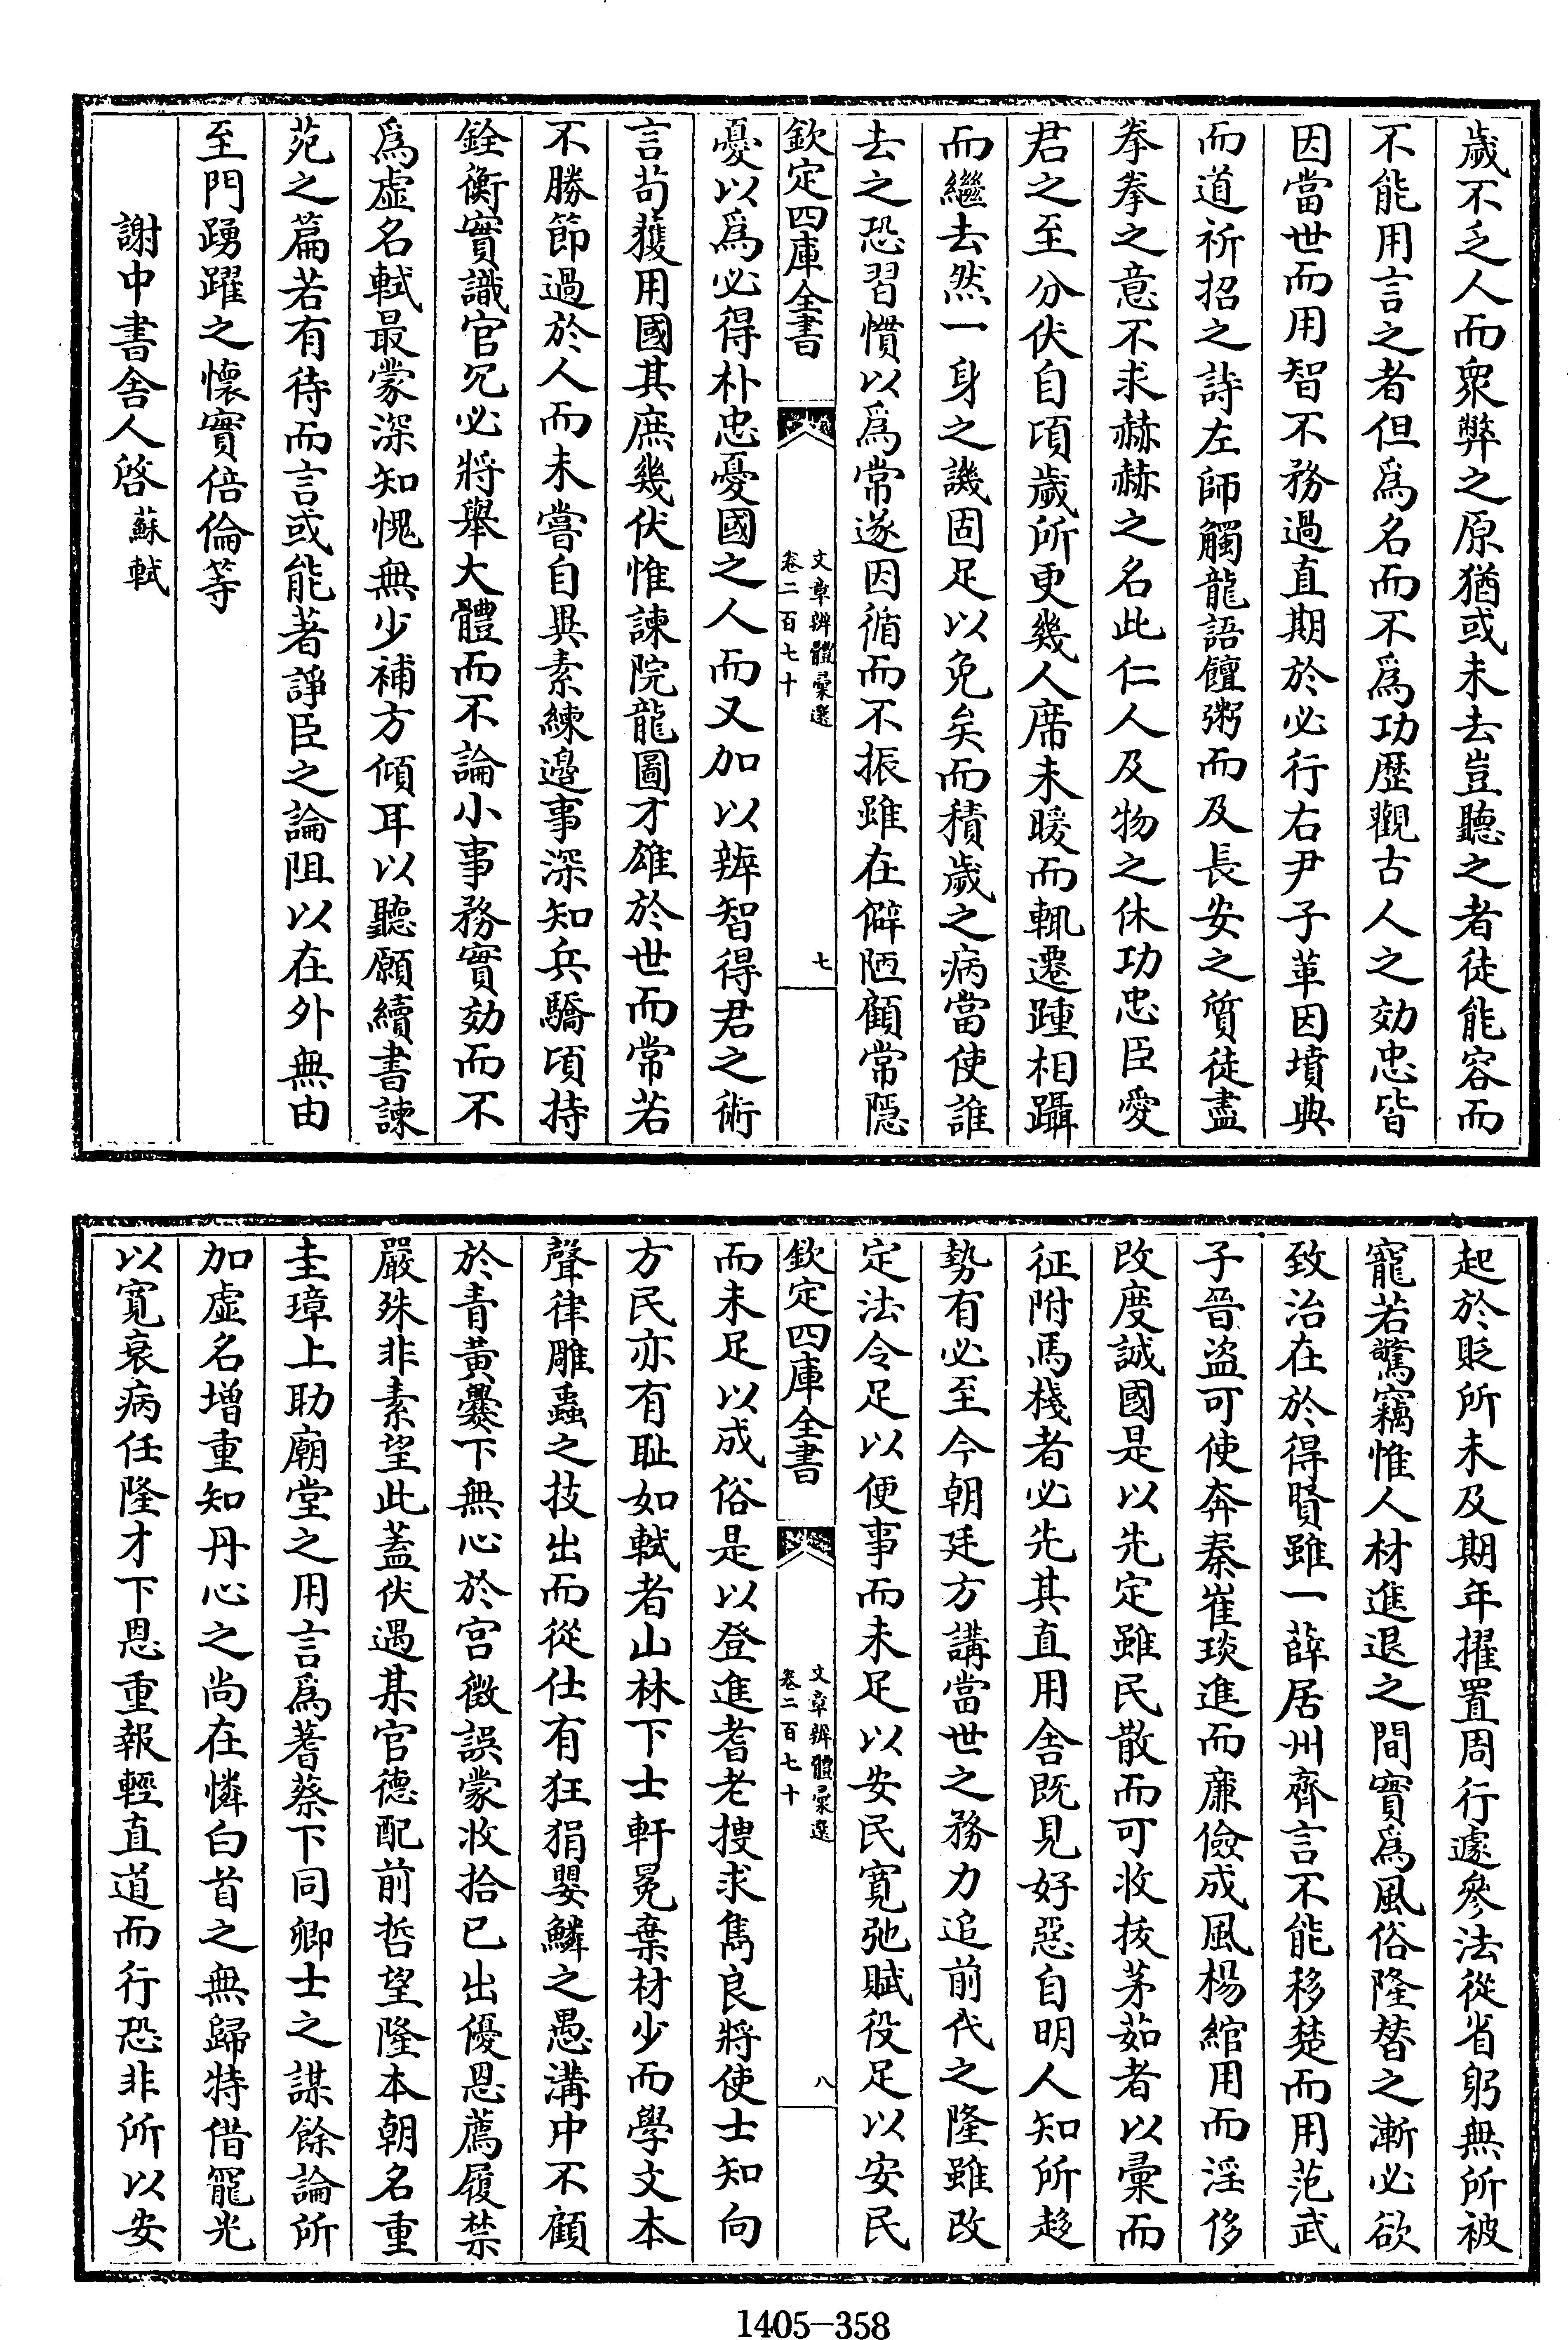 歲不乏人而衆弊之原猶或未去豈聽之者徒能容而
不能用言之者但爲名而不爲功歴觀古人之効忠皆
因當世而用智不務過直期於必行右尹子革因墳典
而道祈招之詩左師觸龍語饘粥而及長安之質徒盡
拳拳之意不求赫赫之名此仁人及物之休功忠臣愛
君之至分伏自頃歲所更幾人席未暖而輒遷踵相躡
而繼去然一身之譏固足以免矣而積歲之病當使誰
去之恐習慣以爲常遂因循而不振雖在僻陋顧常隱
欽定四庫全書
文章辨體彙選
卷二百七十
七
憂以爲必得朴忠憂國之人而又加以辨智得君之術
言茍獲用國其庶幾伏惟諫院龍圖才雄於世而常若
不勝節過於人而未嘗自異素練邊事深知兵驕頃持
銓衡實識官冗必將舉大體而不論小事務實効而不
爲虚名軾最蒙深知愧無少補方傾耳以聽願續書諫
苑之篇若有待而言或能著諍臣之論阻以在外無由
至門踴躍之懷實倍倫等
謝中書舍人啓 蘇軾
起於貶所未及期年擢置周行遽參法從省躬無所被
寵若驚竊惟人材進退之間實爲風俗隆替之漸必欲
致治在於得賢雖一薛居州齊言不能移楚而用范武
子晉盜可使奔秦崔琰進而亷儉成風楊綰用而淫侈
改度誠國是以先定雖民散而可收拔茅茹者以彚而
征附馬棧者必先其直用舍既見好惡自明人知所趍
勢有必至今朝廷方講當世之務力追前代之隆雖改
定法令足以便事而未足以安民寛弛賦役足以安民
欽定四庫全書
文章辨體彙選
卷二百七十
八
而未足以成俗是以登進耆老捜求雋良將使士知向
方民亦有耻如軾者山林下士軒冕棄材少而學文本
聲律雕蟲之技出而從仕有狂狷嬰鱗之愚溝中不顧
於青黄爨下無心於宫徴誤蒙收拾已出優恩薦履禁
嚴殊非素望此蓋伏遇某官德配前哲望隆本朝名重
圭璋上助廟堂之用言爲蓍蔡下同卿士之謀餘論所
加虚名增重知丹心之尚在憐白首之無歸特借寵光
以寛衰病任隆才下恩重報輕直道而行恐非所以安
1405-358